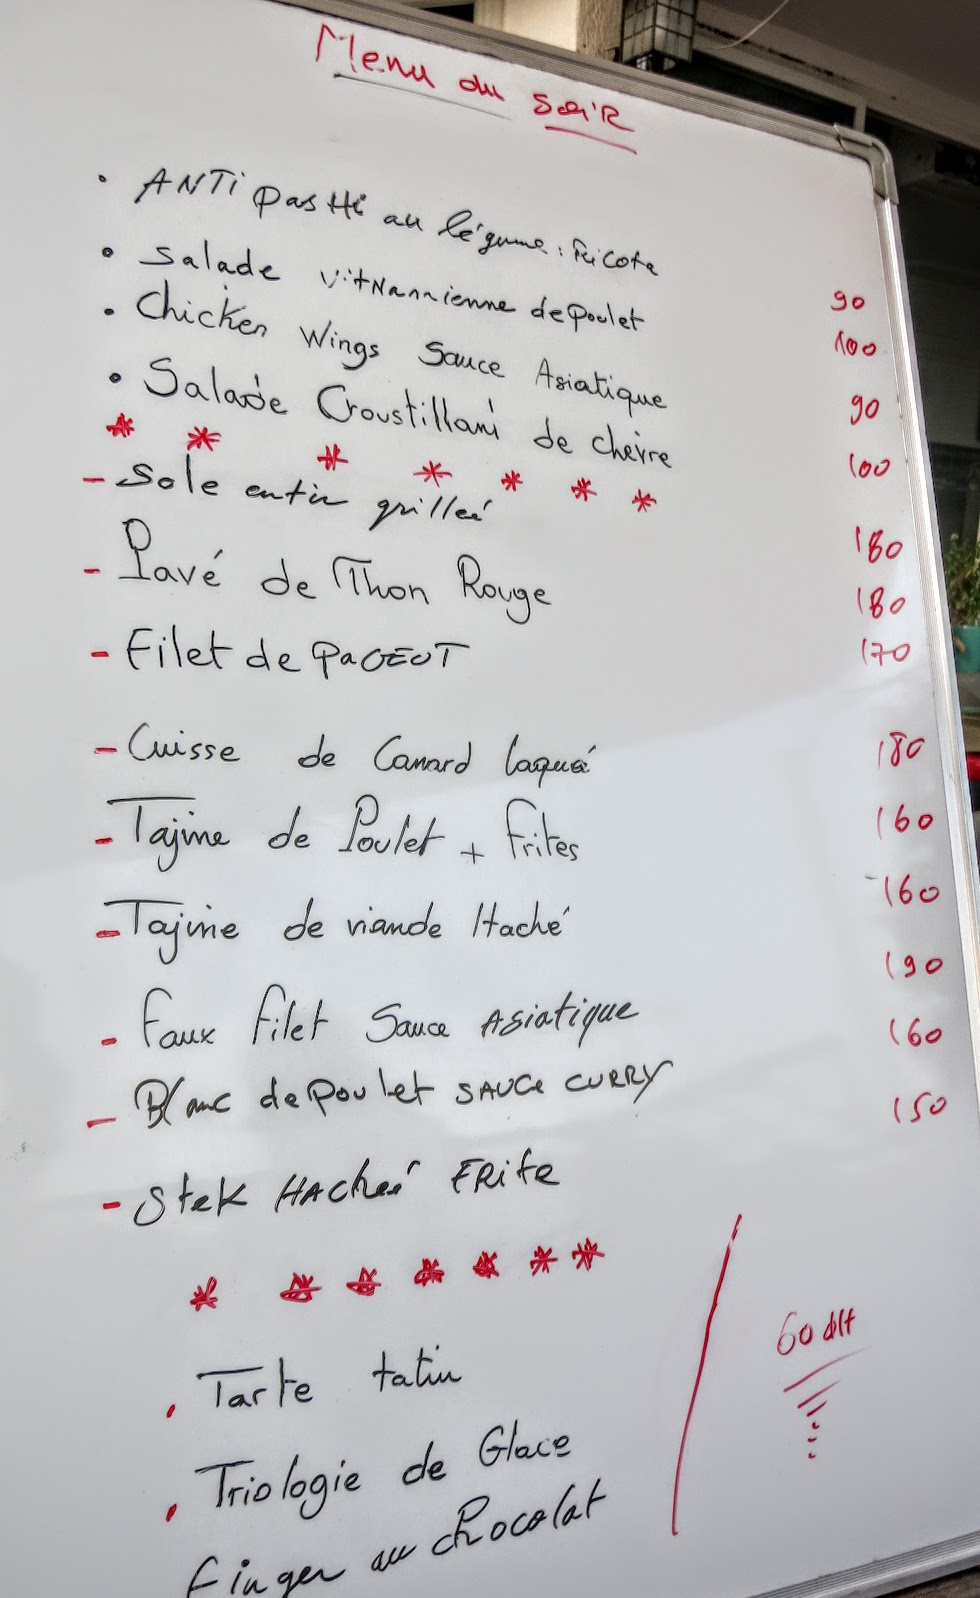 Menu du soiR
• ANTi pastti au légume : Fricote 90
• Salade vitNannienne de poulet 100
• Chicken Wings Sauce Asiatique 90
• Salade Croustillant de chèvre 100
* * * * * * *
- Sole entir grilleé 180
- Pavé de Thon Rouge 180
- Filet de PaGEOT 170
- Cuisse de Canard laqué 180
- Tajine de Poulet + frites 160
- Tajine de viande Haché 160
- Faux filet Sauce Asiatique 190
- Blanc de poulet SAUCe CURRY 160
- Stek HACheé FRite 150
* * * * * * *
. Tarte tatin
60 dht
. Triologie de Glace
finger au chocolat